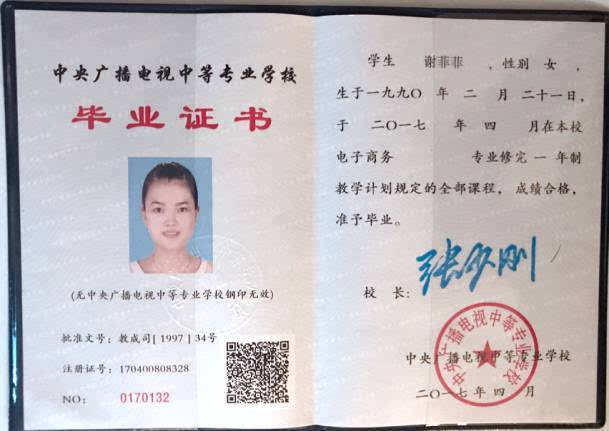 中央广播电视中等专业学校
毕业证书
(无中央广播电视中等专业学校钢印无效)
批准文号: 教成司[1997]34号
注册证号: 170400808328
NO: 0170132
学生 谢菲菲 , 性别 女 ,
生于一九九〇 年 二 月 二十一日,
于 二〇一七 年 四 月在本校
电子商务 专业修完 一 年制
教学计划规定的全部课程, 成绩合格,
准予毕业。
校 长: 张少刚
中央广播电视中等专业学校
中央广播电视中等专业学校
二〇一七年 四 月